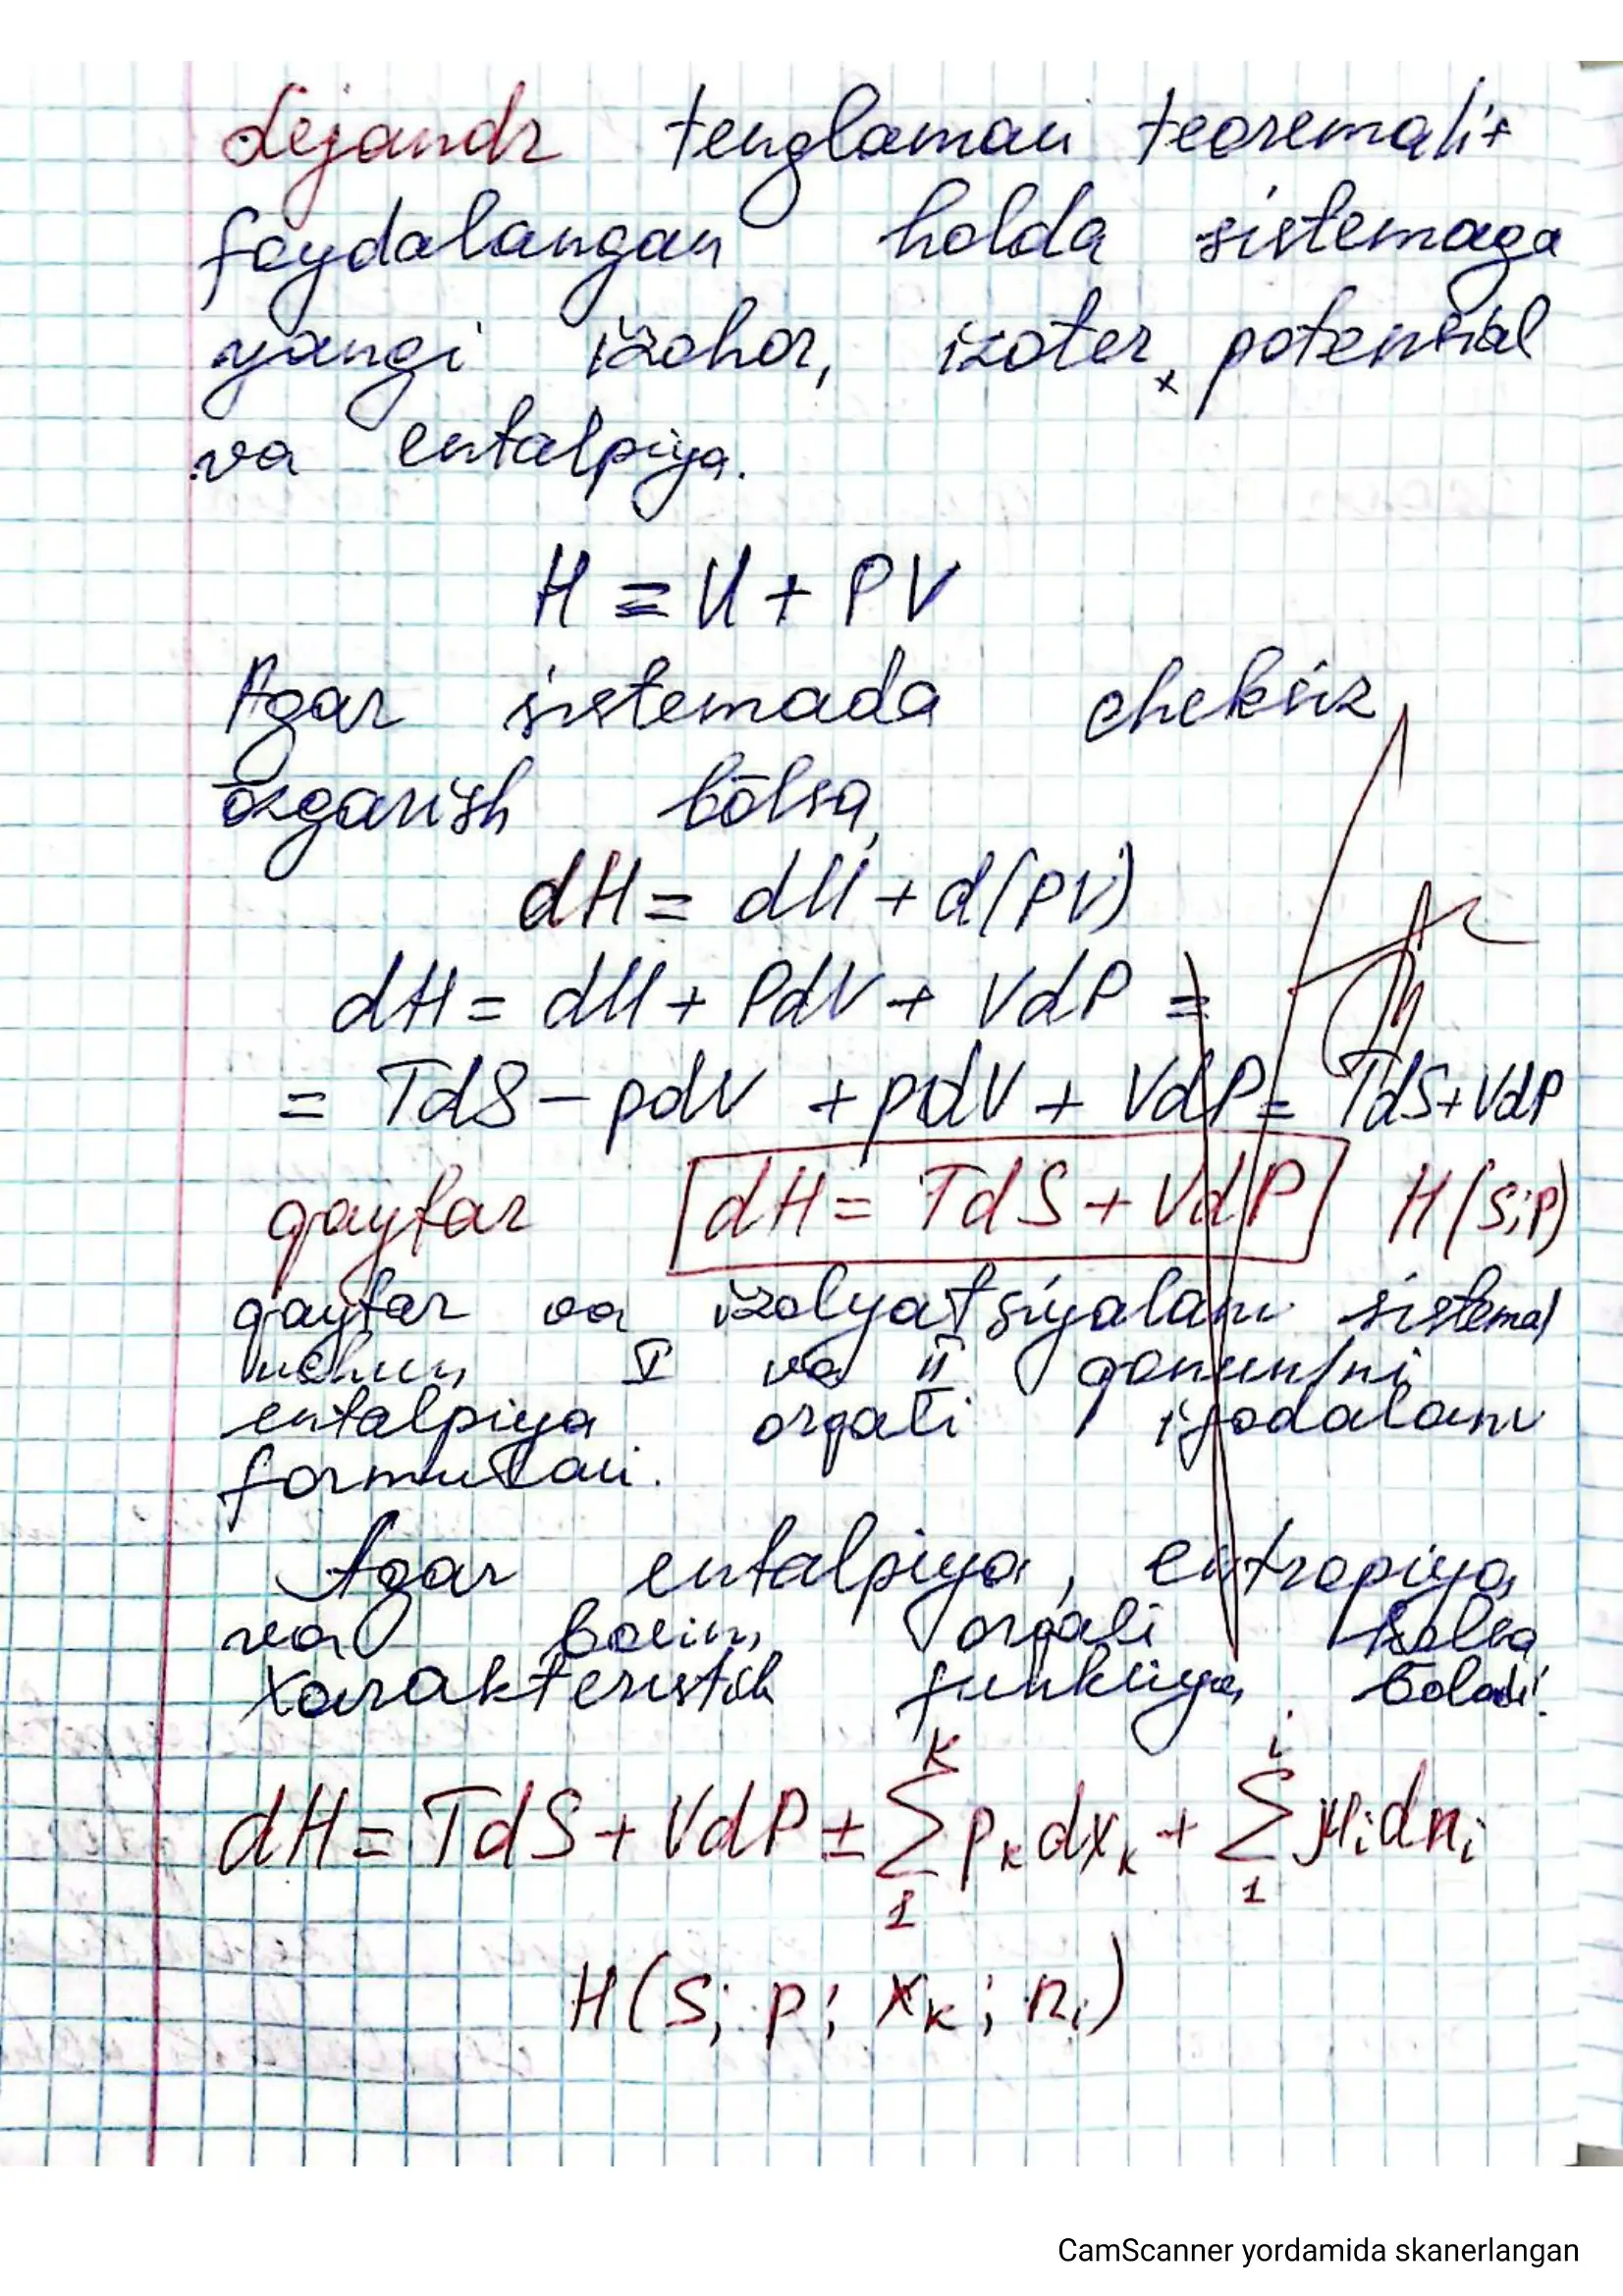 Lejandr tenglamasi teoremali+
foydalangan holda sistemaga
yangi izohor, izoter potensial
va entalpiya.
H = U + PV
Agar sistemada cheksiz
ōzgarish bōlsa,
dH = dU + d(PV)
dH = dU + PdV + VdP =
= TdS - pdV + pdV + VdP = TdS + VdP
qaytar dH = TdS + VdP H(S;P)
qaytar va izolyatsiyalani sistemal
uchun I va II qonun/ni
entalpiya orqali ifodalani
formulasi.
Agar entalpiya, entropiya
va bosim orqali
xarakteristik funksiya bōladi.
dH = TdS + VdP ± Σ₁ᴷ pₖdxₖ + Σ₁ⁱ μᵢdnᵢ
H(S; p; xₖ; nᵢ)
CamScanner yordamida skanerlangan